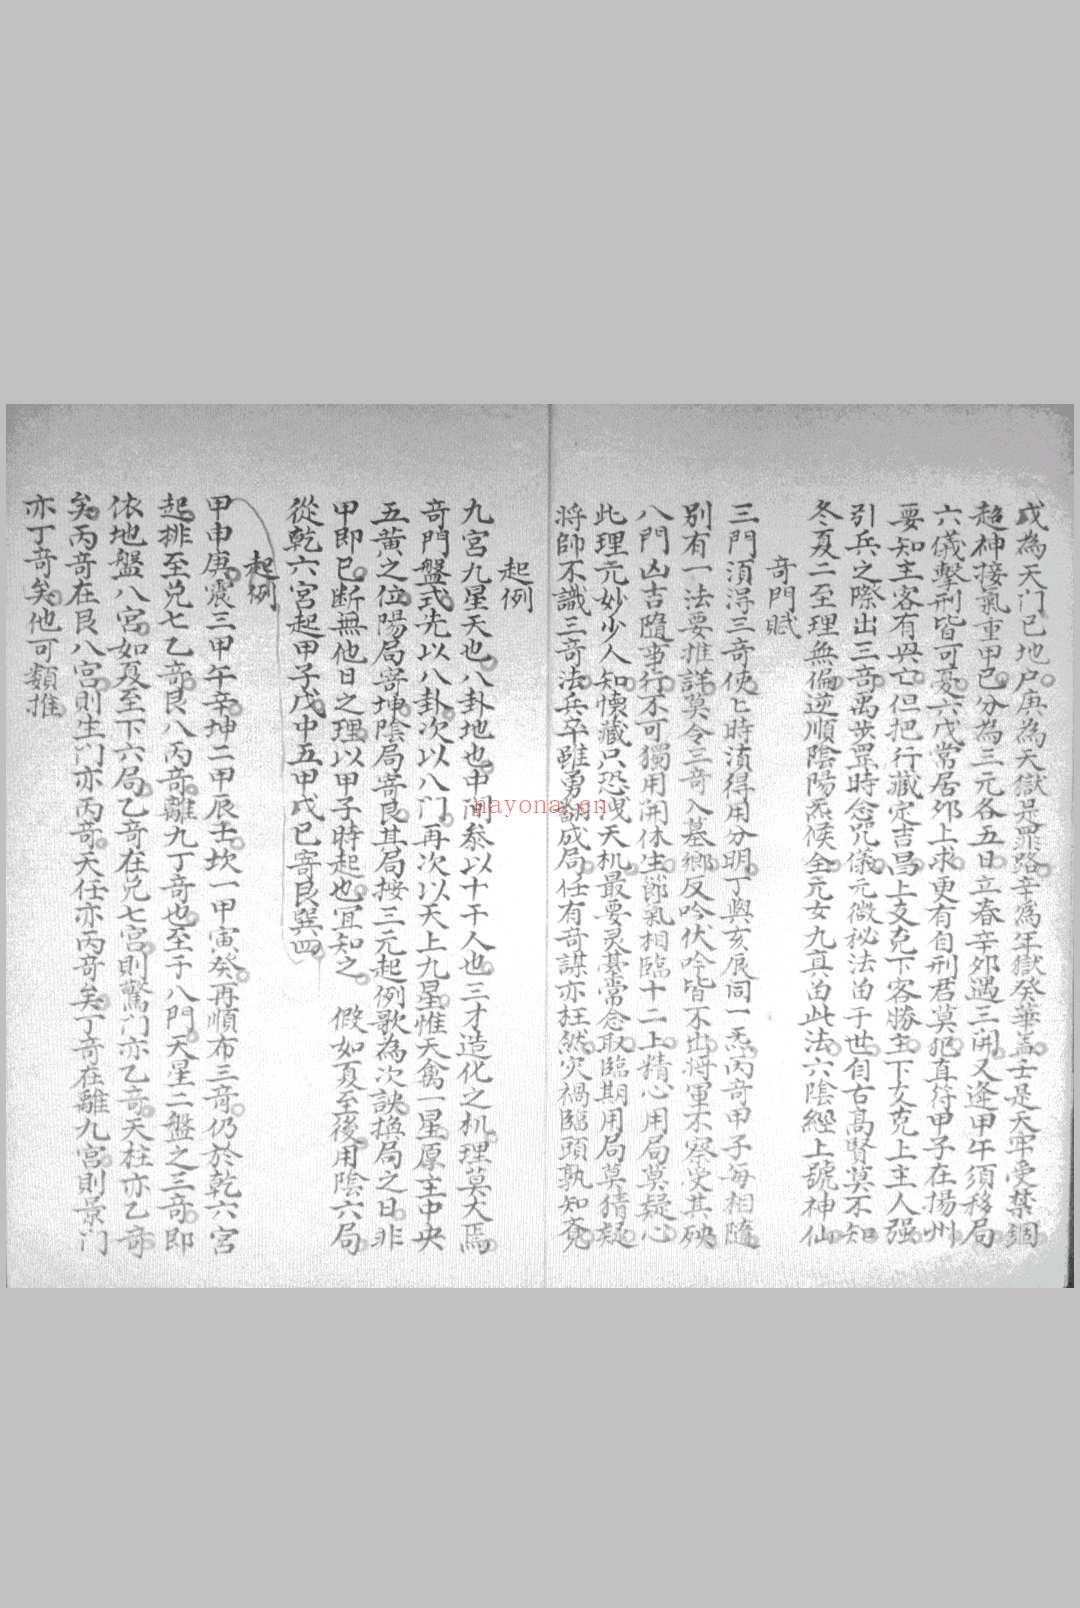 戊為天门己地户庚為天獄是罪路辛為年獄癸華盖壬是天牢受禁錮
超神接氣重甲己分為三元各五日立春辛夘遇三開又逢甲午須移局
六儀擊刑皆可憂六戊常居夘上求更有自刑君莫犯直符甲子在揚州
要知主客有興亡但把行藏定吉昌上支克下客勝主下支克上主人强
引兵之際出三奇禹步罡時念咒儀元微秘法由于世自古高賢莫不知
冬夏二至理無偏逆順陰陽炁候全元女九真留此法六陰經上號神仙
奇門賦
三門湏淂三奇使匕時湏得用分明丁與亥辰同一炁丙奇甲子每相隨
別有一法要推詳莫令三奇入墓鄉反吟伏吟皆不出將軍不察受其殃
八門凶吉隨事行不可獨用開休生節氣相臨十二上精心用局莫疑心
此理元妙少人知懐藏只恐洩天机最要灵基常念取臨期用局莫猜疑
將帥不識三奇法兵卒雖勇難成局任有奇謀亦枉然灾禍臨頭孰知竟
起例
九宮九星天也八卦地也中間叅以十干人也三才造化之机理莫大焉
奇門盤式先以八卦次以八门再次以天上九星惟天禽一星原主中央
五黄之位陽局寄坤陰局寄艮其局按三元起例歌為次訣換局之日非
甲即已断無他日之理以甲子時起也宜知之 假如夏至後用陰六局
從乾六宮起甲子戊中五甲戌已寄艮巽四
起例
甲申庚震三甲午辛坤二甲辰壬坎一甲寅癸再順布三奇仍於乾六宮
起排至兑七乙奇艮八丙奇離九丁奇也至于八門天星二盤之三奇即
依地盤八宮如夏至下六局乙奇在兑七宮則驚门亦乙奇天柱亦乙奇
矣丙奇在艮八宮則生门亦丙奇天任亦丙奇矣丁奇在離九宮則景门
亦丁奇矣他可類推
nayona.cn